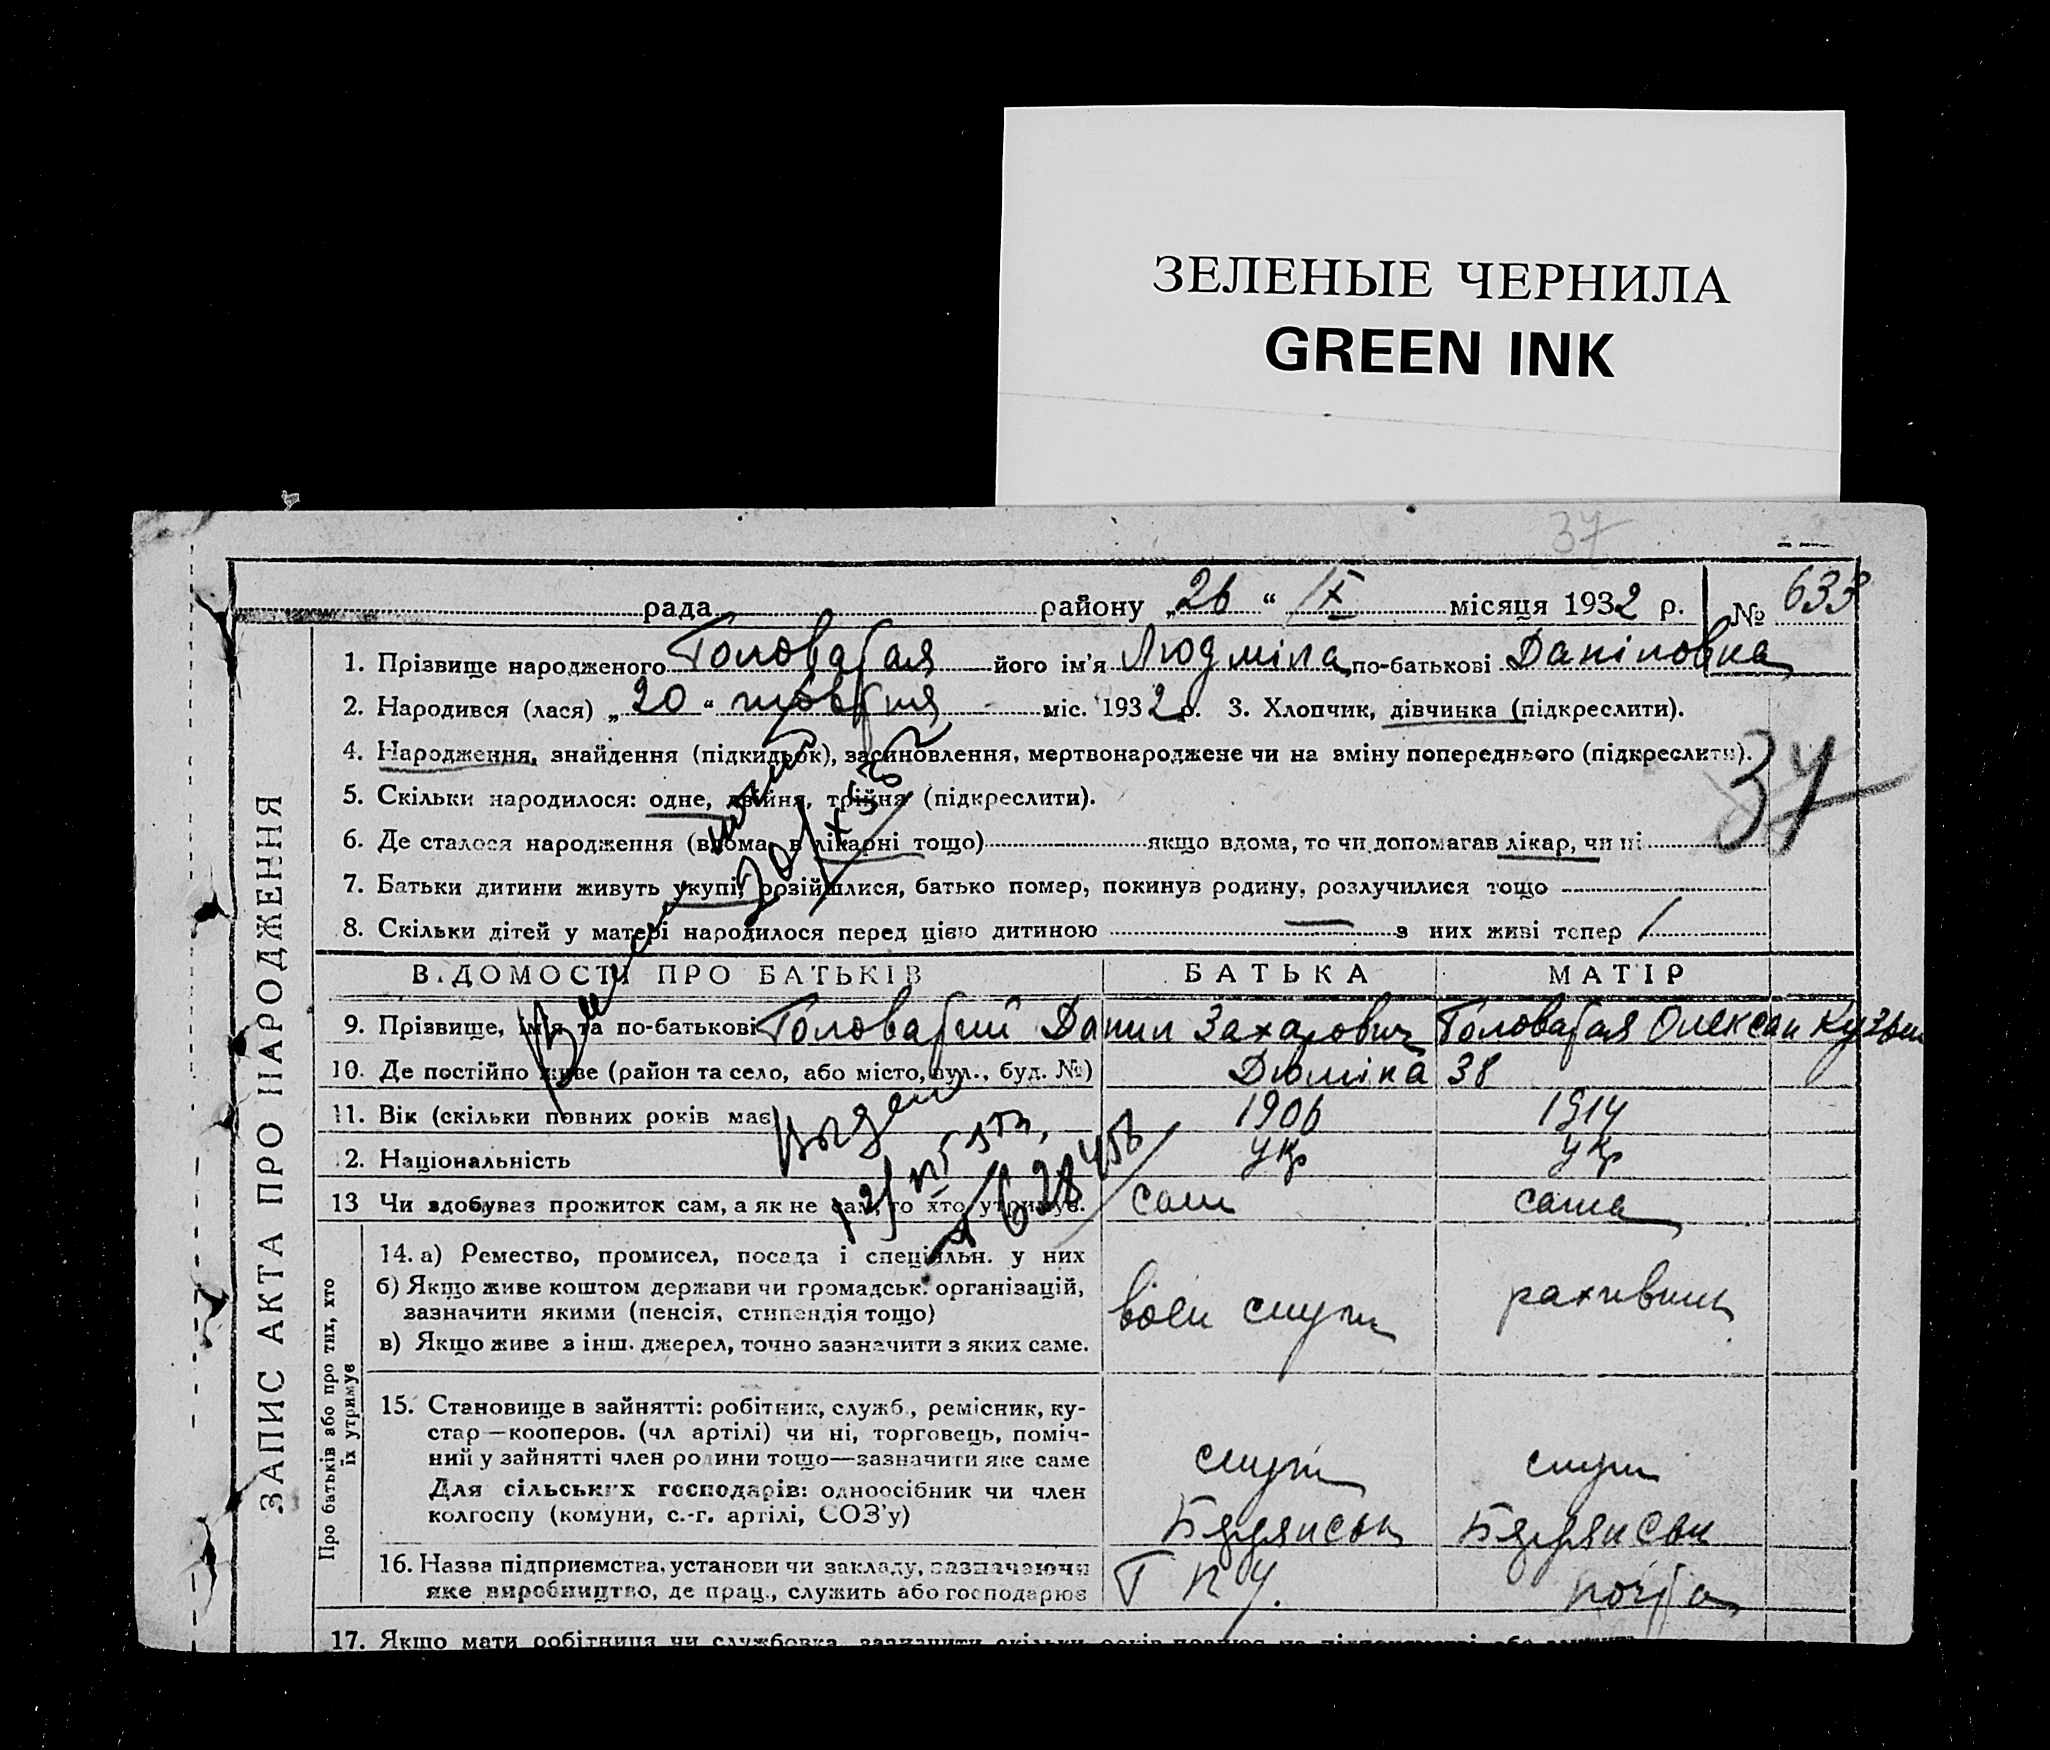 ЗЕЛЕНЫЕ ЧЕРНИЛА
GREEN INK
37
рада району „26“ IX місяця 1932 р. № 633
ЗАПИС АКТА ПРО НАРОДЖЕННЯ
1. Прізвище народженого Головатая його ім'я Людміла по-батькові Даніловна
2. Народився (лася) „20“ жовтня міс. 1932 р. 3. Хлопчик, дівчинка (підкреслити).
4. Народження, знайдення (підкидьок), засиновлення, мертвонароджене чи на зміну попереднього (підкреслити).
37
5. Скільки народилося: одне, двійня, трійня (підкреслити).
6. Де сталося народження (вдома, в лікарні тощо) якщо вдома, то чи допомагав лікар, чи ні
7. Батьки дитини живуть укупі, розійшлися, батько помер, покинув родину, розлучилися тощо
8. Скільки дітей у матері народилося перед цією дитиною — з них живі тепер 1
ВІДОМОСТИ ПРО БАТЬКІВ БАТЬКА МАТІР
9. Прізвище, ім'я та по-батькові Головатий Данил Захарович Головатая Олексан Кузьм
10. Де постійно живе (район та село, або місто, вул., буд. №) Дюміна 38
11. Вік (скільки повних років має 1906 1914
12. Національність укр укр
13 Чи здобуває прожиток сам, а як не сам, то хто утримує. сам сама
Про батьків або про тих, хто
їх утримує
14. а) Ремество, промисел, посада і спеціяльн. у них
б) Якщо живе коштом держави чи громадськ. організацій,
зазначити якими (пенсія, стипендія тощо)
в) Якщо живе з інш. джерел, точно зазначити з яких саме.
воєн служ рахівниц
15. Становище в зайнятті: робітник, служб., ремісник, ку-
стар—кооперов. (чл артілі) чи ні, торговець, поміч-
ний у зайнятті член родини тощо—зазначити яке саме
служ служ
Для сільських господарів: одноосібник чи член
колгоспу (комуни, с.-г. артілі, СОЗ'у)
Бердянськ Бердянськ
16. Назва підприємства, установи чи закладу, зазначаючи
яке виробництво, де прац., служить або господарює
Г П У. почта
17. Якщо мати робітниця чи службовка, зазначити скільки років працює на підприємстві або